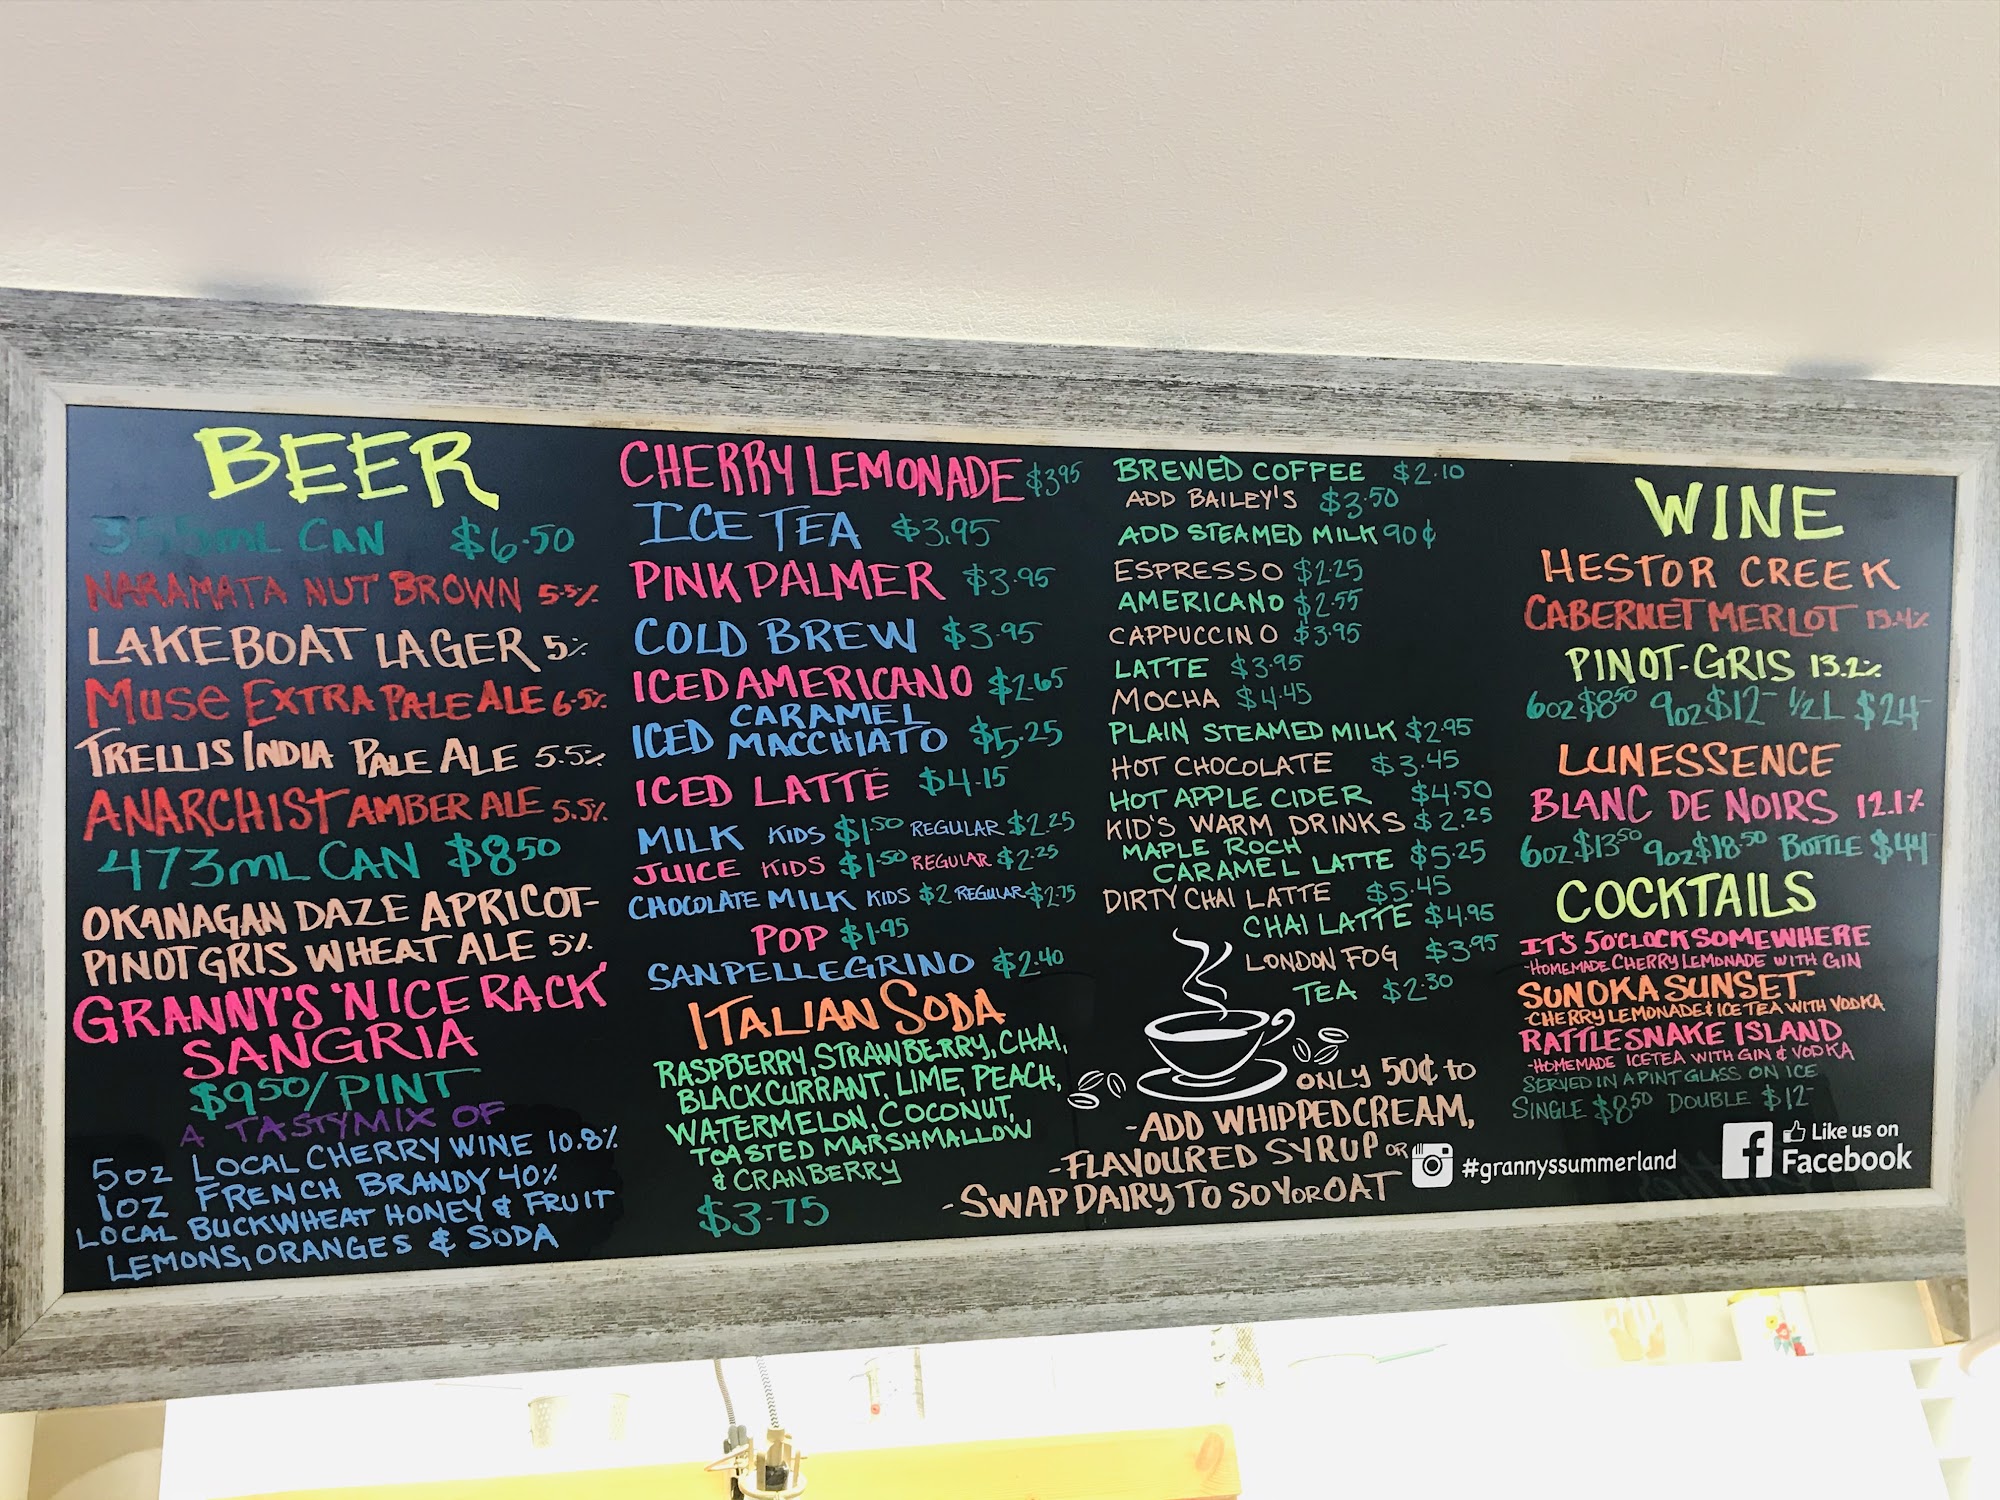 BEER
355mL CAN $6.50
NARAMATA NUT BROWN 5.5%
LAKEBOAT LAGER 5%
MUSE EXTRA PALE ALE 6.5%
TRELLIS INDIA PALE ALE 5.5%
ANARCHIST AMBER ALE 5.5%
473mL CAN $8.50
OKANAGAN DAZE APRICOT-
PINOT GRIS WHEAT ALE 5%
GRANNY'S 'NICE RACK'
SANGRIA
$9.50/PINT
A TASTY MIX OF
5oz LOCAL CHERRY WINE 10.8%
1oz FRENCH BRANDY 40%
LOCAL BUCKWHEAT HONEY & FRUIT
LEMONS, ORANGES & SODA
CHERRY LEMONADE $3.95
ICE TEA $3.95
PINK PALMER $3.95
COLD BREW $3.95
ICED AMERICANO $2.65
ICED CARAMEL MACCHIATO $5.25
ICED LATTE $4.15
MILK KIDS $1.50 REGULAR $2.25
JUICE KIDS $1.50 REGULAR $2.25
CHOCOLATE MILK KIDS $2 REGULAR $2.75
POP $1.95
SANPELLEGRINO $2.40
ITALIAN SODA
RASPBERRY, STRAWBERRY, CHAI,
BLACKCURRANT, LIME, PEACH,
WATERMELON, COCONUT,
TOASTED MARSHMALLOW
& CRANBERRY
$3.75
BREWED COFFEE $2.10
ADD BAILEY'S $3.50
ADD STEAMED MILK 90¢
ESPRESSO $2.25
AMERICANO $2.55
CAPPUCCINO $3.95
LATTE $3.95
MOCHA $4.45
PLAIN STEAMED MILK $2.95
HOT CHOCOLATE $3.45
HOT APPLE CIDER $4.50
KID'S WARM DRINKS $2.25
MAPLE ROCH
CARAMEL LATTE $5.25
DIRTY CHAI LATTE $5.45
CHAI LATTE $4.95
LONDON FOG $3.95
TEA $2.30
ONLY 50¢ TO
-ADD WHIPPED CREAM,
-FLAVOURED SYRUP OR
-SWAP DAIRY TO SOY OR OAT
#grannyssummerland
WINE
HESTOR CREEK
CABERNET MERLOT 13.4%
PINOT-GRIS 13.2%
6oz $8.50 9oz $12- ½L $24-
LUNESSENCE
BLANC DE NOIRS 12.1%
6oz $13.50 9oz $18.50 BOTTLE $44-
COCKTAILS
IT'S 5 O'CLOCK SOMEWHERE
-HOMEMADE CHERRY LEMONADE WITH GIN
SUNOKA SUNSET
-CHERRY LEMONADE & ICE TEA WITH VODKA
RATTLESNAKE ISLAND
-HOMEMADE ICETEA WITH GIN & VODKA
SERVED IN A PINT GLASS ON ICE
SINGLE $8.50 DOUBLE $12-
f Like us on
Facebook